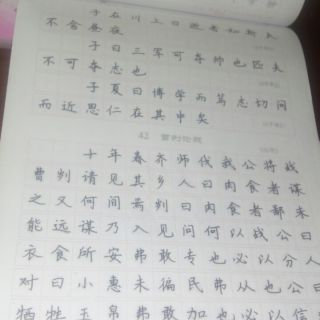 子在川上曰逝者如斯夫
不舍昼夜
子曰三军可夺帅也匹夫
不可夺志也
子夏曰博学而笃志切问
而近思仁在其中矣
42 曹刿论战
十年春齐师伐我公将战
曹刿请见其乡人曰肉食者谋
之又何间焉刿曰肉食者鄙未
能远谋乃入见问何以战公曰
衣食所安弗敢专也必以分人
对曰小惠未徧民弗从也公曰
牺牲玉帛弗敢加也必以信